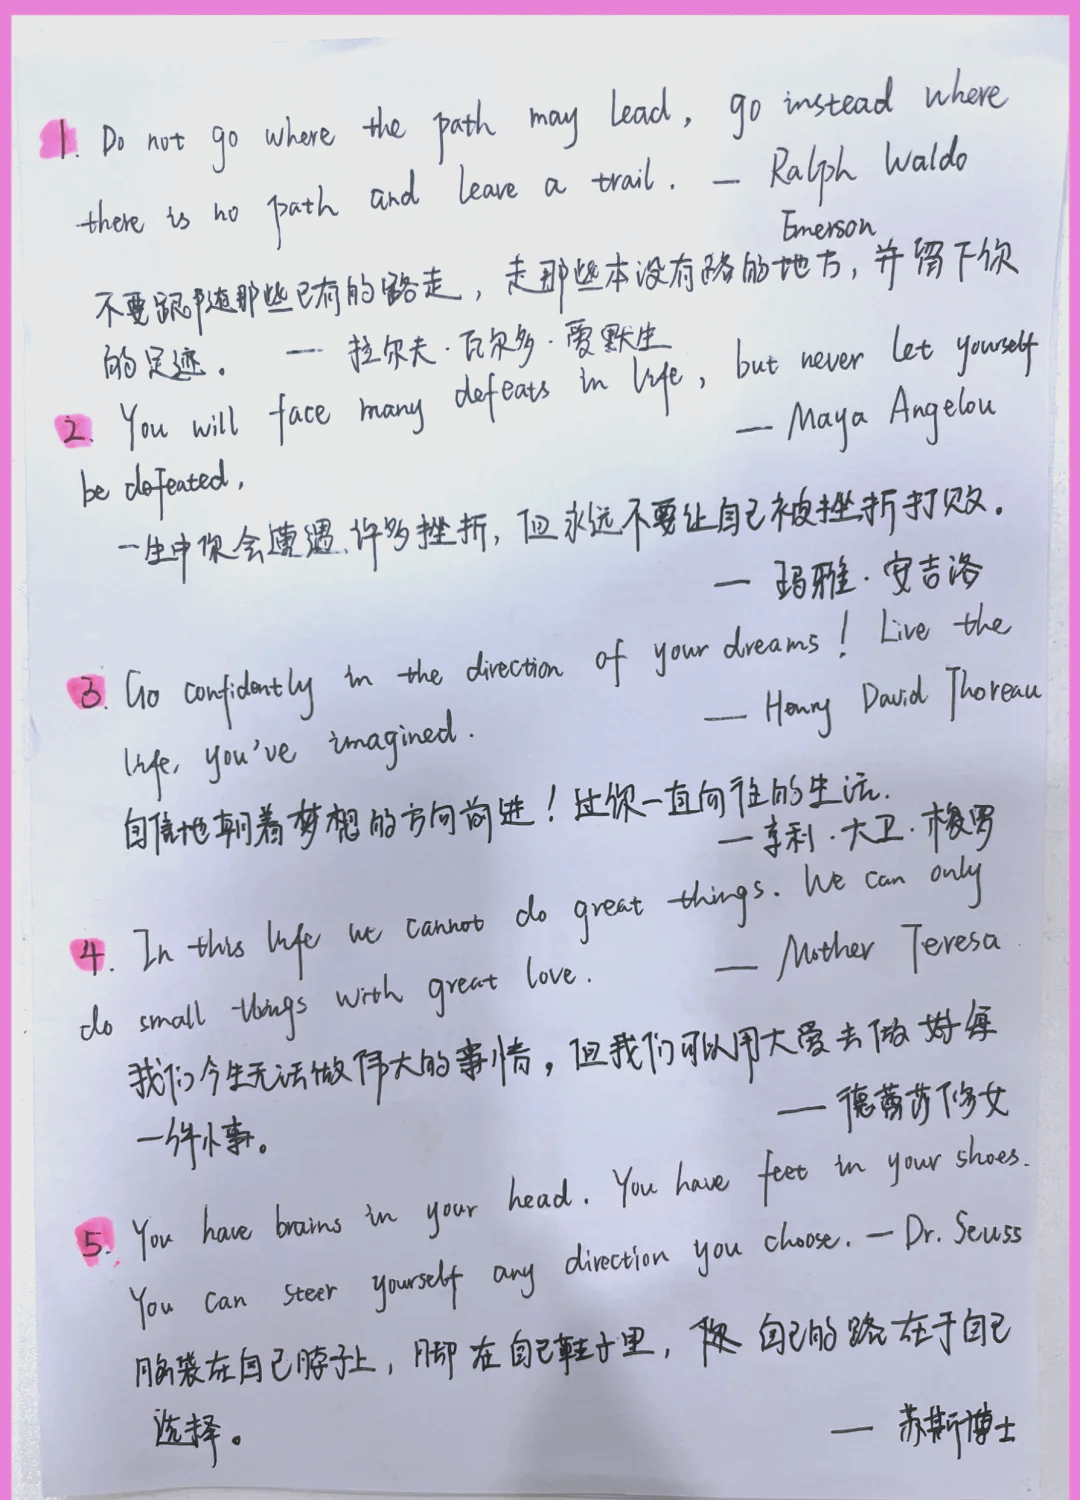 1. Do not go where the path may lead, go instead where
there is no path and leave a trail. — Ralph Waldo
Emerson
不要跟随那些已有的路走，走那些本没有路的地方，并留下你
的足迹。 — 拉尔夫·瓦尔多·爱默生
2. You will face many defeats in life, but never let yourself
be defeated. — Maya Angelou
一生中你会遭遇许多挫折，但永远不要让自己被挫折打败。
— 玛雅·安吉洛
3. Go confidently in the direction of your dreams! Live the
life, you've imagined. — Henry David Thoreau
自信地朝着梦想的方向前进！过你一直向往的生活.
— 亨利·大卫·梭罗
4. In this life we cannot do great things. We can only
do small things with great love. — Mother Teresa
我们今生无法做伟大的事情，但我们可以用大爱去做好每
一件小事。 — 德蕾莎修女
5. You have brains in your head. You have feet in your shoes.
You can steer yourself any direction you choose. — Dr. Seuss
脑袋在自己脖子上，脚在自己鞋子里，你自己的路在于自己
选择。 — 苏斯博士